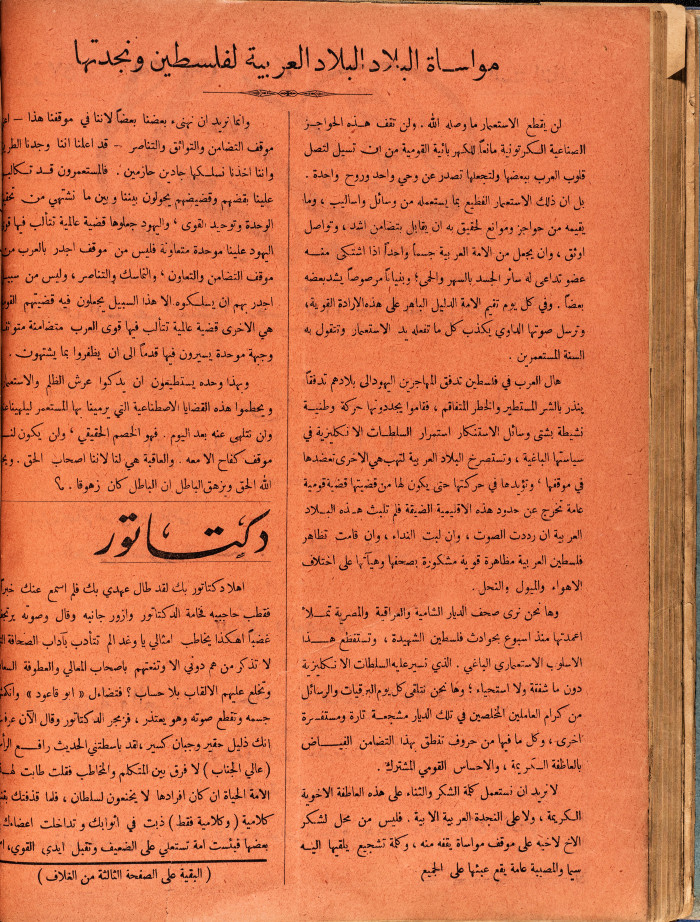 مواساة البلاد البلاد العربية لفلسطين ونجدتها
لن يقطع الاستعمار ما وصله الله . ولن تقف هذه الحواجز
الصناعية الكرتونية مانعاً للكهربائية القومية من ان تسيل لتصل
قلوب العرب ببعضها ولتجعلها تصدر عن وحي واحد وروح واحدة .
بل ان ذلك الاستعمار الفظيع بما يستعمله من وسائل واساليب ، وما
يقيمه من حواجز وموانع لحقيق به ان يقابل بتضامن اشد ، وتواصل
اوثق ، وان يجعل من الامة العربية جسماً واحداً اذا اشتكى منه
عضو تداعى له سائر الجسد بالسهر والحمى ؛ وبنياناً مرصوصاً يشد بعضه
بعضاً . وفي كل يوم تقيم الامة الدليل الباهر على هذه الارادة القوية ،
وترسل صوتها الداوي يكذب كل ما تفعله يد الاستعمار وتتقول به
السنة المستعمرين .
هال العرب في فلسطين تدفق المهاجرين اليهود الى بلادهم تدفقاً
ينذر بالشر المستطير والخطر المتفاقم ، فقاموا يجددونها حركة وطنية
نشيطة بشتى وسائل الاستنكار استمرار السلطات الانكليزية في
سياستها الباغية ، وتستصرخ البلاد العربية لتهب هي الاخرى تعضدها
في موقفها ، وتؤيدها في حركتها حتى يكون لها من قضيتها قضية قومية
عامة تخرج عن حدود هذه الاقليمية الضيقة فلم تلبث هذه البلاد
العربية ان رددت الصوت ، وان لبت النداء ، وان قامت تظاهر
فلسطين العربية مظاهرة قوية مشكورة بصحفها وهيآتها على اختلاف
الاهواء والميول والنحل .
وها نحن نرى صحف الديار الشامية والعراقية والمصرية تملأ
اعمدتها منذ اسبوع بحوادث فلسطين الشهيدة ، وتستفظع هذا
الاسلوب الاستعماري الباغي . الذي تسير عليه السلطات الانكليزية
دون ما شفقة ولا استحياء ؛ وها نحن نتلقى كل يوم البرقيات والرسائل
من كرام العاملين المخلصين في تلك الديار مشجعة تارة ومستفسرة
اخرى ، وكل ما فيها من حروف تنطق بهذا التضامن الفياض
بالعاطفة الكريمة ، والاحساس القومي المشترك .
لا نريد ان نستعمل كلمة الشكر والثناء على هذه العاطفة الاخوية
الكريمة ، ولا على النجدة العربية الابية . فليس من محل لشكر
الاخ لاخيه على موقف مواساة يقفه منه ، وكلمة تشجيع يلقيها اليه
سيما والمصيبة عامة يقع عبئها على الجميع
وانما نريد ان نهنىء بعضنا بعضاً لاننا في موقفنا هذا -
موقف التضامن والتواثق والتناصر - قد اعلنا اننا وجدنا
واننا اخذنا نسلكها جادين حازمين . فالمستعمرون قد
علينا بقضهم وقضيضهم يحولون بيننا وبين ما نشتهي من
الوحدة وتوحيد القوى ، واليهود جعلوها قضية عالمية تتألب فيها
اليهود علينا موحدة متعاونة فليس من موقف اجدر بالعرب من
موقف التضامن والتعاون ، والتماسك والتناصر ، وليس من
اجدر بهم ان يسلكوه الا هذا السبيل يجعلون فيه قضيتهم
هي الاخرى قضية عالمية تتألب فيها قوى العرب متضامنة
وجهة موحدة يسيرون فيها قدماً الى ان يظفروا بما يشتهون .
وبهذا وحده يستطيعون ان يدكوا عرش الظلم
ويحطموا هذه القضايا الاصطناعية التي يرمينا بها المستعمر
وان نتلهى عنه بعد اليوم . فهو الخصم الحقيقي ، ولن يكون
موقف كفاح الا معه . والعاقبة هي لنا لاننا اصحاب الحق .
الله الحق ويزهق الباطل ان الباطل كان زهوقا . ؟
دكتاتور
اهلا دكتاتور بك لقد طال عهدي بك فلم اسمع عنك
فقطب حاجبيه فخامة الدكتاتور وازور جانبه وقال وصوته
غضباً اهكذا يخاطب امثالي يا وغد الم تتأدب بآداب الصحافة
لا تذكر من هم دوني الا وتنعتهم باصحاب المعالي والعطوفة
وتخلع عليهم الالقاب بلا حساب ؟ فتضاءل « ابو قاعود »
جسمه وتقطع صوته وهو يعتذر ، فزمجر الدكتاتور وقال الآن
انك ذليل حقير وجبان كبير ، لقد باسطتني الحديث رافع
( عالي الجناب ) لا فرق بين المتكلم والمخاطب فقلت طابت
الامة الحياة ان كان افرادها لا يخنعون لسلطان ، فلما قذفتك
كلامية ( وكلامية فقط ) ذبت في اثوابك وتداخلت اعضاءك
بعضها فبئست امة تستعلي على الضعيف وتقبل ايدي القوي ،
( البقية على الصفحة الثالثة من الغلاف )